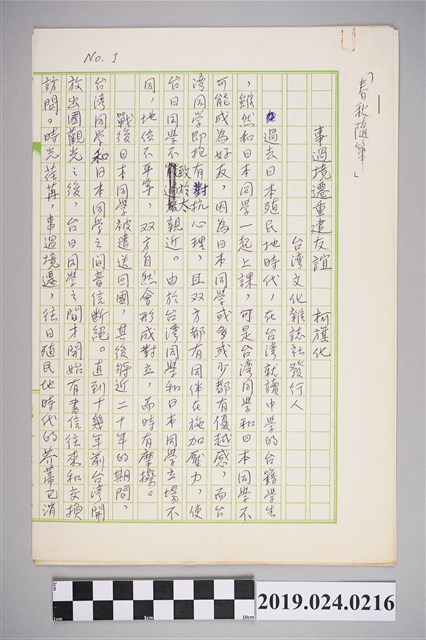 No. 1
「春秋隨筆」
事過境遷重建友誼　柯旗化
台湾文化雜誌社發行人
過去日本殖民地時代，在台湾就讀中學的台籍學生
，雖然和日本同學一起上課，可是台湾同學和日本同學不
可能成為好友，因為日本同學或多或少都有優越感，而台
湾同學即抱有對抗心理，且双方都有同伴在旋加壓力，使
台日同學不敢於太親近。由於台湾同學和日本同學立場不
同，地位不平等，双方自然會形成對立，而時有摩擦。
戰後日本同學被遣送回國，其後將近二十年的期間，
台湾同學和日本同學之間音信斷絕。直到十幾年前台湾開
放出國觀光之後，台日同學之間才開始有書信往來和交換
訪問。時光荏苒，事過境遷，往日殖民地時代的芥蒂已消
1cm
5cm
10cm
2019.024.0216